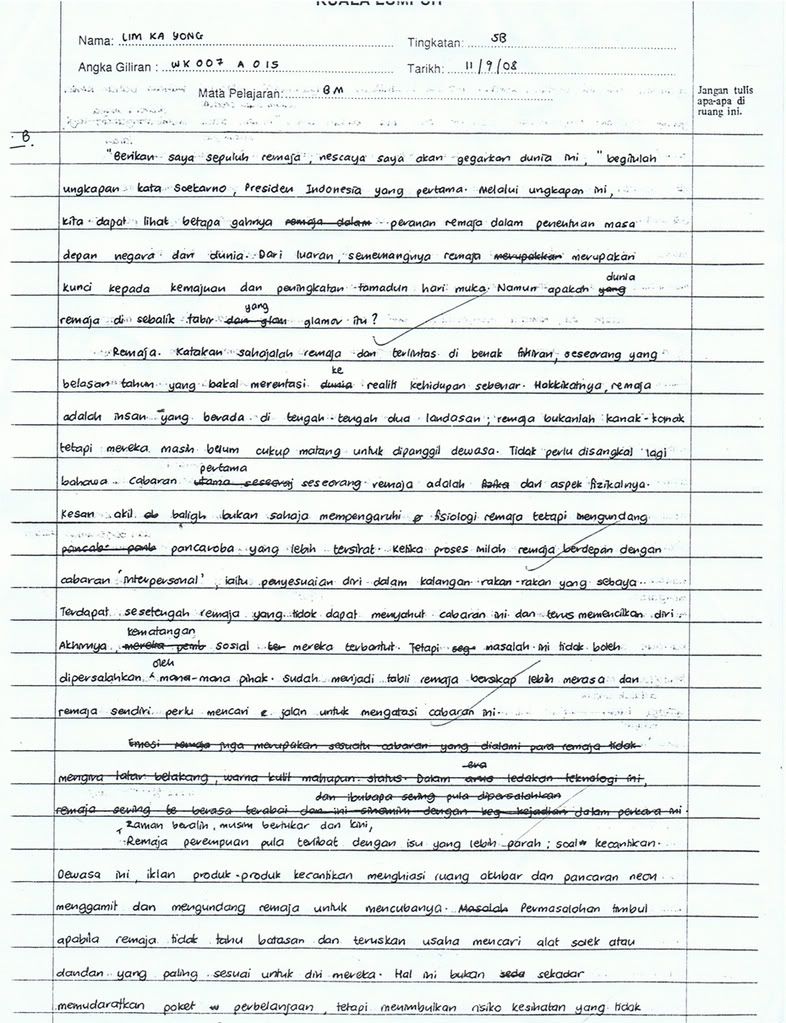 KUALA LUMPUR
Nama: LIM KA YONG Tingkatan: 5B
Angka Giliran : WK 007 A 015 Tarikh: 11/9/08
Mata Pelajaran: BM
Jangan tulis
apa-apa di
ruang ini.
B.
"Berikan saya sepuluh remaja, nescaya saya akan gegarkan dunia ini," begitulah
ungkapan kata Soekarno, Presiden Indonesia yang pertama. Melalui ungkapan ini,
kita dapat lihat betapa gahnya remaja dalam peranan remaja dalam penentuan masa
depan negara dan dunia. Dari luaran, sememangnya remaja merupakkan merupakan
dunia
kunci kepada kemajuan dan peningkatan tamadun hari muka. Namun apakah yang
yang
remaja di sebalik tabir dan glam glamor itu?
Remaja. Katakan sahajalah remaja dan terlintas di benak fikiran, seseorang yang
ke
belasan tahun yang bakal merentasi dunia realiti kehidupan sebenar. Hakkikatnya, remaja
adalah insan yang berada di tengah-tengah dua landasan; remaja bukanlah kanak-kanak
tetapi mereka masih belum cukup matang untuk dipanggil dewasa. Tidak perlu disangkal lagi
pertama
bahawa cabaran utama seseoraj seseorang remaja adalah fizika dari aspek fizikalnya.
Kesan akil baligh bukan sahaja mempengaruhi fisiologi remaja tetapi mengundang
pancaroba yang lebih tersirat. Ketika proses inilah remaja berdepan dengan
cabaran 'interpersonal', iaitu penyesuaian diri dalam kalangan rakan-rakan yang sebaya.
Terdapat sesetengah remaja yang tidak dapat menyahut cabaran ini dan terus memencilkan diri.
kematangan
Akhirnya, mereka pemb sosial ter mereka terbantut. Tetapi seg masalah ini tidak boleh
oleh
dipersalahkan mana-mana pihak. Sudah menjadi tabii remaja bersikap lebih merasa dan
remaja sendiri perlu mencari jalan untuk mengatasi cabaran ini.
Emosi remaja juga merupakan sesuatu cabaran yang dialami para remaja tidak
era
mengira latar belakang, warna kulit mahupun status. Dalam arus ledakan teknologi ini,
dan ibubapa sering pula dipersalahkan
remaja sering te berasa terabai dan ini sinonim dengan keg kejadian dalam perkara ini.
Zaman beralih, musim bertukar dan kini,
Remaja perempuan pula terlibat dengan isu yang lebih parah; soal kecantikan.
Dewasa ini, iklan produk-produk kecantikan menghiasi ruang akhbar dan pancaran neon
menggamit dan mengundang remaja untuk mencubanya. Masalah Permasalahan timbul
apabila remaja tidak tahu batasan dan teruskan usaha mencari alat solek atau
dandan yang paling sesuai untuk diri mereka. Hal ini bukan seda sekadar
memudaratkan poket perbelanjaan, tetapi menimbulkan risiko kesihatan yang tidak